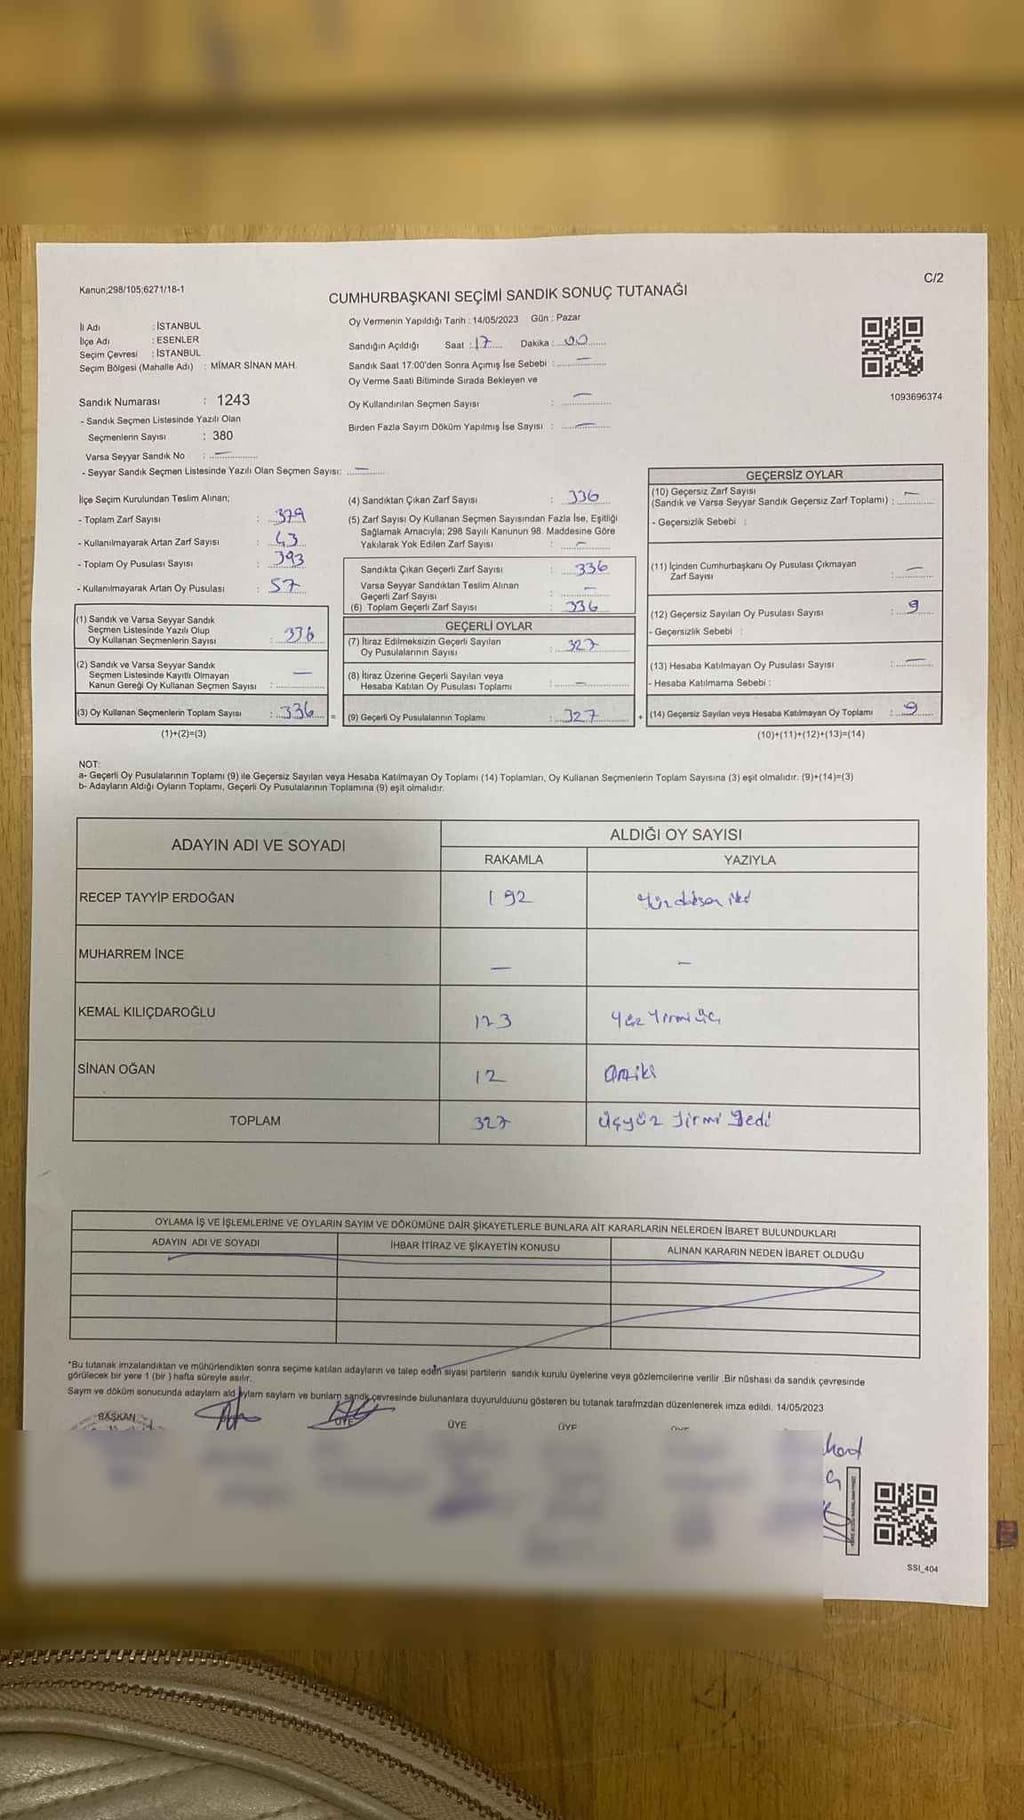 Kanun;298/105;6271/18-1
C/2
CUMHURBAŞKANI SEÇİMİ SANDIK SONUÇ TUTANAĞI
İl Adı : İSTANBUL
İlçe Adı : ESENLER
Seçim Çevresi : İSTANBUL
Seçim Bölgesi (Mahalle Adı) : MİMAR SİNAN MAH.
Oy Vermenin Yapıldığı Tarih : 14/05/2023 Gün : Pazar
Sandığın Açıldığı Saat : 17 Dakika : 00
Sandık Saat 17:00'den Sonra Açımış İse Sebebi : —
Oy Verme Saati Bitiminde Sırada Bekleyen ve
Oy Kullandırılan Seçmen Sayısı : —
Birden Fazla Sayım Döküm Yapılmış İse Sayısı : —
1093696374
Sandık Numarası : 1243
- Sandık Seçmen Listesinde Yazılı Olan
Seçmenlerin Sayısı : 380
Varsa Seyyar Sandık No : —
- Seyyar Sandık Seçmen Listesinde Yazılı Olan Seçmen Sayısı: —
İlçe Seçim Kurulundan Teslim Alınan;
- Toplam Zarf Sayısı : 379
- Kullanılmayarak Artan Zarf Sayısı : 43
- Toplam Oy Pusulası Sayısı : 393
- Kullanılmayarak Artan Oy Pusulası : 57
(1) Sandık ve Varsa Seyyar Sandık
Seçmen Listesinde Yazılı Olup
Oy Kullanan Seçmenlerin Sayısı : 336
(2) Sandık ve Varsa Seyyar Sandık
Seçmen Listesinde Kayıtlı Olmayan
Kanun Gereği Oy Kullanan Seçmen Sayısı : —
(3) Oy Kullanan Seçmenlerin Toplam Sayısı : 336
(1)+(2)=(3)
(4) Sandıktan Çıkan Zarf Sayısı : 336
(5) Zarf Sayısı Oy Kullanan Seçmen Sayısından Fazla İse, Eşitliği
Sağlamak Amacıyla; 298 Sayılı Kanunun 98. Maddesine Göre
Yakılarak Yok Edilen Zarf Sayısı : —
Sandıkta Çıkan Geçerli Zarf Sayısı : 336
Varsa Seyyar Sandıktan Teslim Alınan
Geçerli Zarf Sayısı : —
(6) Toplam Geçerli Zarf Sayısı : 336
GEÇERLİ OYLAR
(7) İtiraz Edilmeksizin Geçerli Sayılan
Oy Pusulalarının Sayısı : 327
(8) İtiraz Üzerine Geçerli Sayılan veya
Hesaba Katılan Oy Pusulası Toplamı : —
= (9) Geçerli Oy Pusulalarının Toplamı : 327 +
GEÇERSİZ OYLAR
(10) Geçersiz Zarf Sayısı
(Sandık ve Varsa Seyyar Sandık Geçersiz Zarf Toplamı) : —
- Geçersizlik Sebebi :
(11) İçinden Cumhurbaşkanı Oy Pusulası Çıkmayan
Zarf Sayısı : —
(12) Geçersiz Sayılan Oy Pusulası Sayısı : 9
- Geçersizlik Sebebi :
(13) Hesaba Katılmayan Oy Pusulası Sayısı : —
- Hesaba Katılmama Sebebi :
(14) Geçersiz Sayılan veya Hesaba Katılmayan Oy Toplamı : 9
(10)+(11)+(12)+(13)=(14)
NOT:
a- Geçerli Oy Pusulalarının Toplamı (9) ile Geçersiz Sayılan veya Hesaba Katılmayan Oy Toplamı (14) Toplamları, Oy Kullanan Seçmenlerin Toplam Sayısına (3) eşit olmalıdır. (9)+(14)=(3)
b- Adayların Aldığı Oyların Toplamı, Geçerli Oy Pusulalarının Toplamına (9) eşit olmalıdır.
ADAYIN ADI VE SOYADI
ALDIĞI OY SAYISI
RAKAMLA YAZIYLA
RECEP TAYYİP ERDOĞAN 192
MUHARREM İNCE — —
KEMAL KILIÇDAROĞLU 123 Yüz Yirmi üç
SİNAN OĞAN 12 Oniki
TOPLAM 327 üçyüz Yirmi Yedi
OYLAMA İŞ VE İŞLEMLERİNE VE OYLARIN SAYIM VE DÖKÜMÜNE DAİR ŞİKAYETLERLE BUNLARA AİT KARARLARIN NELERDEN İBARET BULUNDUKLARI
ADAYIN ADI VE SOYADI İHBAR İTİRAZ VE ŞİKAYETİN KONUSU ALINAN KARARIN NEDEN İBARET OLDUĞU
*Bu tutanak imzalandıktan ve mühürlendikten sonra seçime katılan adayların ve talep eden siyasi partilerin sandık kurulu üyelerine veya gözlemcilerine verilir .Bir nüshası da sandık çevresinde
görülecek bir yere 1 (bir ) hafta süreyle asılır.
Sayım ve döküm sonucunda adayların ald oyların sayların ve bunların sandık çevresinde bulunanlara duyurulduunu gösteren bu tutanak tarafmzdan düzenlenerek imza edildi. 14/05/2023
BAŞKAN ÜYE ÜYE ÜYE
SSİ_404